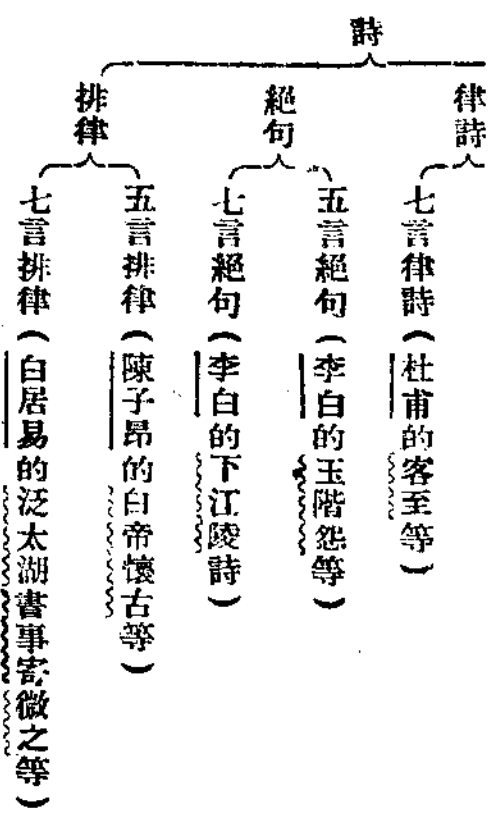 詩
律詩
七言律詩(杜甫的客至等)
絕句
五言絕句(李白的玉階怨等)
七言絕句(李白的下江陵詩)
排律
五言排律(陳子昂的白帝懷古等)
七言排律(白居易的泛太湖書事寄微之等)